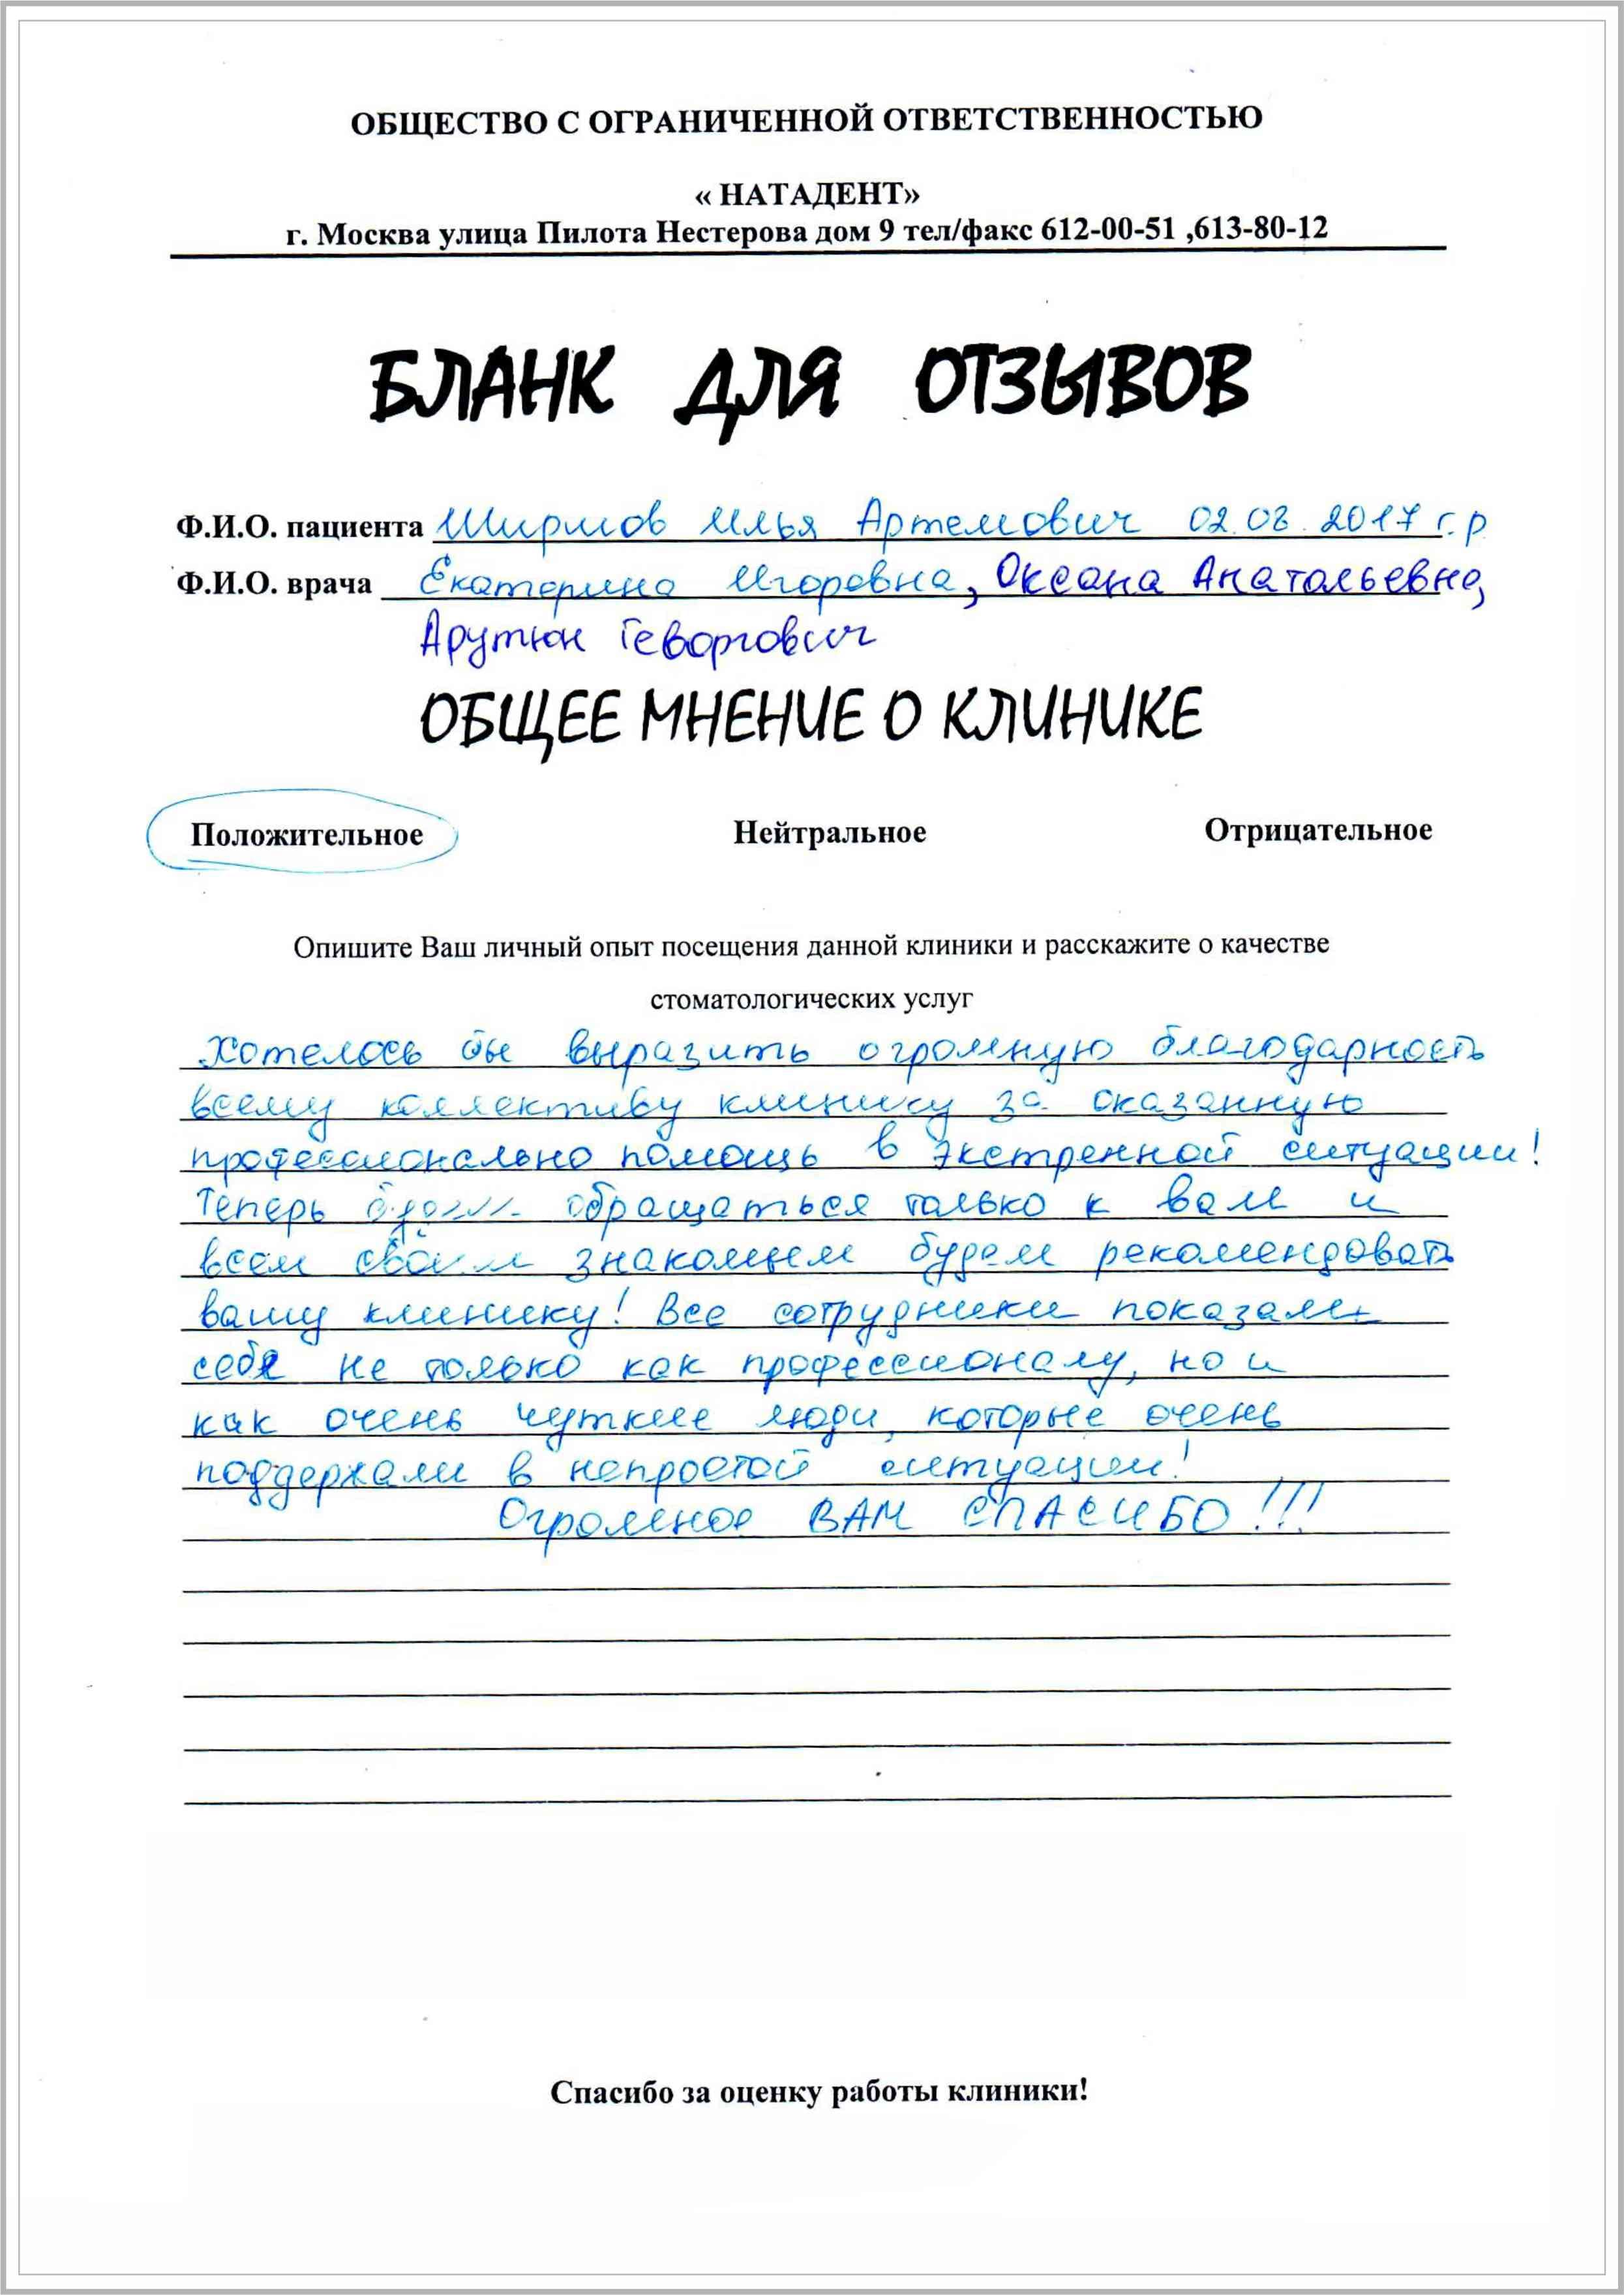 ОБЩЕСТВО С ОГРАНИЧЕННОЙ ОТВЕТСТВЕННОСТЬЮ
« НАТАДЕНТ»
г. Москва улица Пилота Нестерова дом 9 тел/факс 612-00-51 ,613-80-12
БЛАНК ДЛЯ ОТЗЫВОВ
Ф.И.О. пациента Ширмов Илья Артемович 02.08.2017 г.р
Ф.И.О. врача Екатерина Игоревна, Оксана Анатольевна,
Арутюн Геворгович
ОБЩЕЕ МНЕНИЕ О КЛИНИКЕ
Положительное Нейтральное Отрицательное
Опишите Ваш личный опыт посещения данной клиники и расскажите о качестве
стоматологических услуг
Хотелось бы выразить огромную благодарность
всему коллективу клинику за оказанную
профессионально помощь в экстренной ситуации!
Теперь будем обращаться только к вам и
всем своим знакомым будем рекомендовать
вашу клинику! Все сотрудники показали
себя не только как профессионалу, но и
как очень чуткие люди, которые очень
поддержали в непростой ситуации!
Огромное ВАМ СПАСИБО!!!
Спасибо за оценку работы клиники!